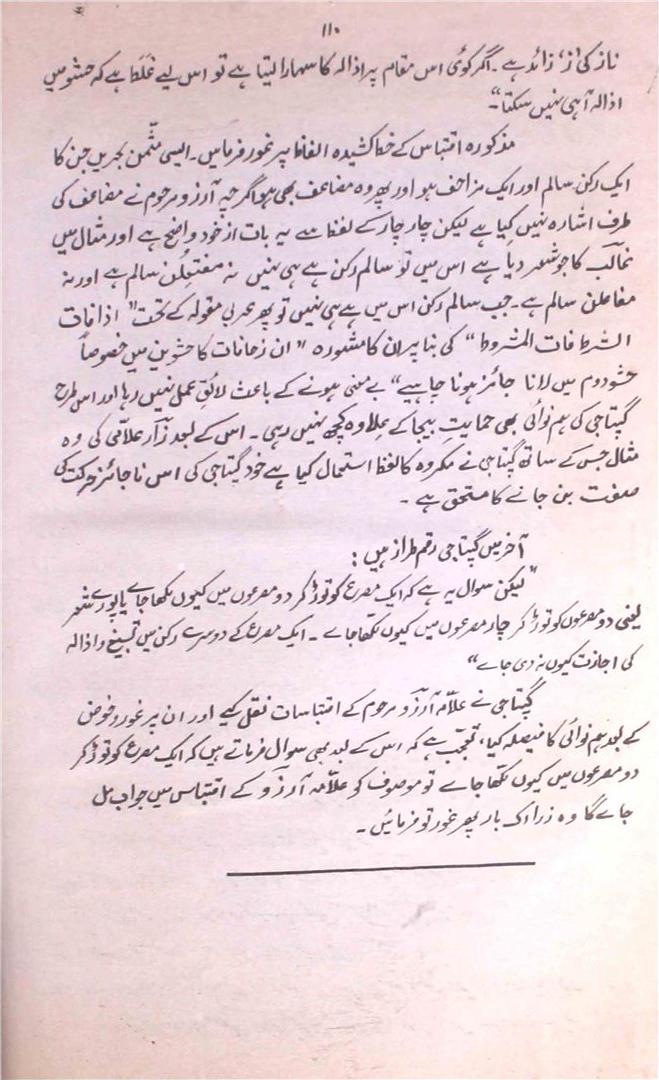 ۱۱۰
ناز کی 'ز' زائد ہے۔ اگر کوئی اس مقام پر اذالہ کا سہارا لیتا ہے تو اس لیے غلط ہے کہ حشو میں
اذالہ آ ہی نہیں سکتا"۔
مذکورہ اقتباس کے خط کشیدہ الفاظ پر غور فرمائیں۔ ایسی مثمن بحریں جن کا
ایک رکن سالم اور ایک مزاحف ہو اور پھر وہ مضاعف بھی ہو اگرچہ آرزو مرحوم نے مضاعف کی
طرف اشارہ نہیں کیا ہے لیکن چار چار کے لفظ سے یہ بات از خود واضح ہے اور مثال میں
غالب کا جو شعر دیا ہے اس میں تو سالم رکن ہے ہی نہیں نہ مفتعلن سالم ہے اور نہ
مفاعلن سالم ہے۔ جب سالم رکن اس میں ہے ہی نہیں تو پھر عربی مقولہ کے تحت "اذا فات
الشرط فات المشروط" کی بنا پر ان کا مشورہ "ان زحافات کا حشوین میں خصوصاً
حشو دوم میں لانا جائز ہونا چاہیے" بے معنی ہونے کے باعث لائق عمل نہیں رہا اور اس طرح
گپتا جی کی ہم نوائی بھی حمایتِ بیجا کے علاوہ کچھ نہیں رہی۔ اس کے بعد زار علامی کی وہ
مثال جس کے ساتھ گپتا جی نے مکروہ کا لفظ استعمال کیا ہے خود گپتا جی کی اس ناجائز حرکت کی
صفت بن جانے کا مستحق ہے۔
آخر میں گپتا جی رقم طراز ہیں:
"لیکن سوال یہ ہے کہ ایک مصرع کو توڑ کر دو مصرعوں میں کیوں لکھا جاے یا پورے شعر
یعنی دو مصرعوں کو توڑ کر چار مصرعوں میں کیوں لکھا جاے۔ ایک مصرع کے دوسرے رکن میں تسبیغ و اذالہ
کی اجازت کیوں نہ دی جاے"
گپتا جی نے علّامہ آرزو مرحوم کے اقتباسات نقل کیے اور ان پر غور و خوض
کے بعد ہم نوائی کا فیصلہ کیا، تعجب ہے کہ اس کے بعد بھی سوال فرماتے ہیں کہ ایک مصرع کو توڑ کر
دو مصرعوں میں کیوں لکھا جاے تو موصوف کو علّامہ آرزو کے اقتباس میں جواب مل
جاے گا وہ ذرا اک بار پھر غور تو فرمائیں۔